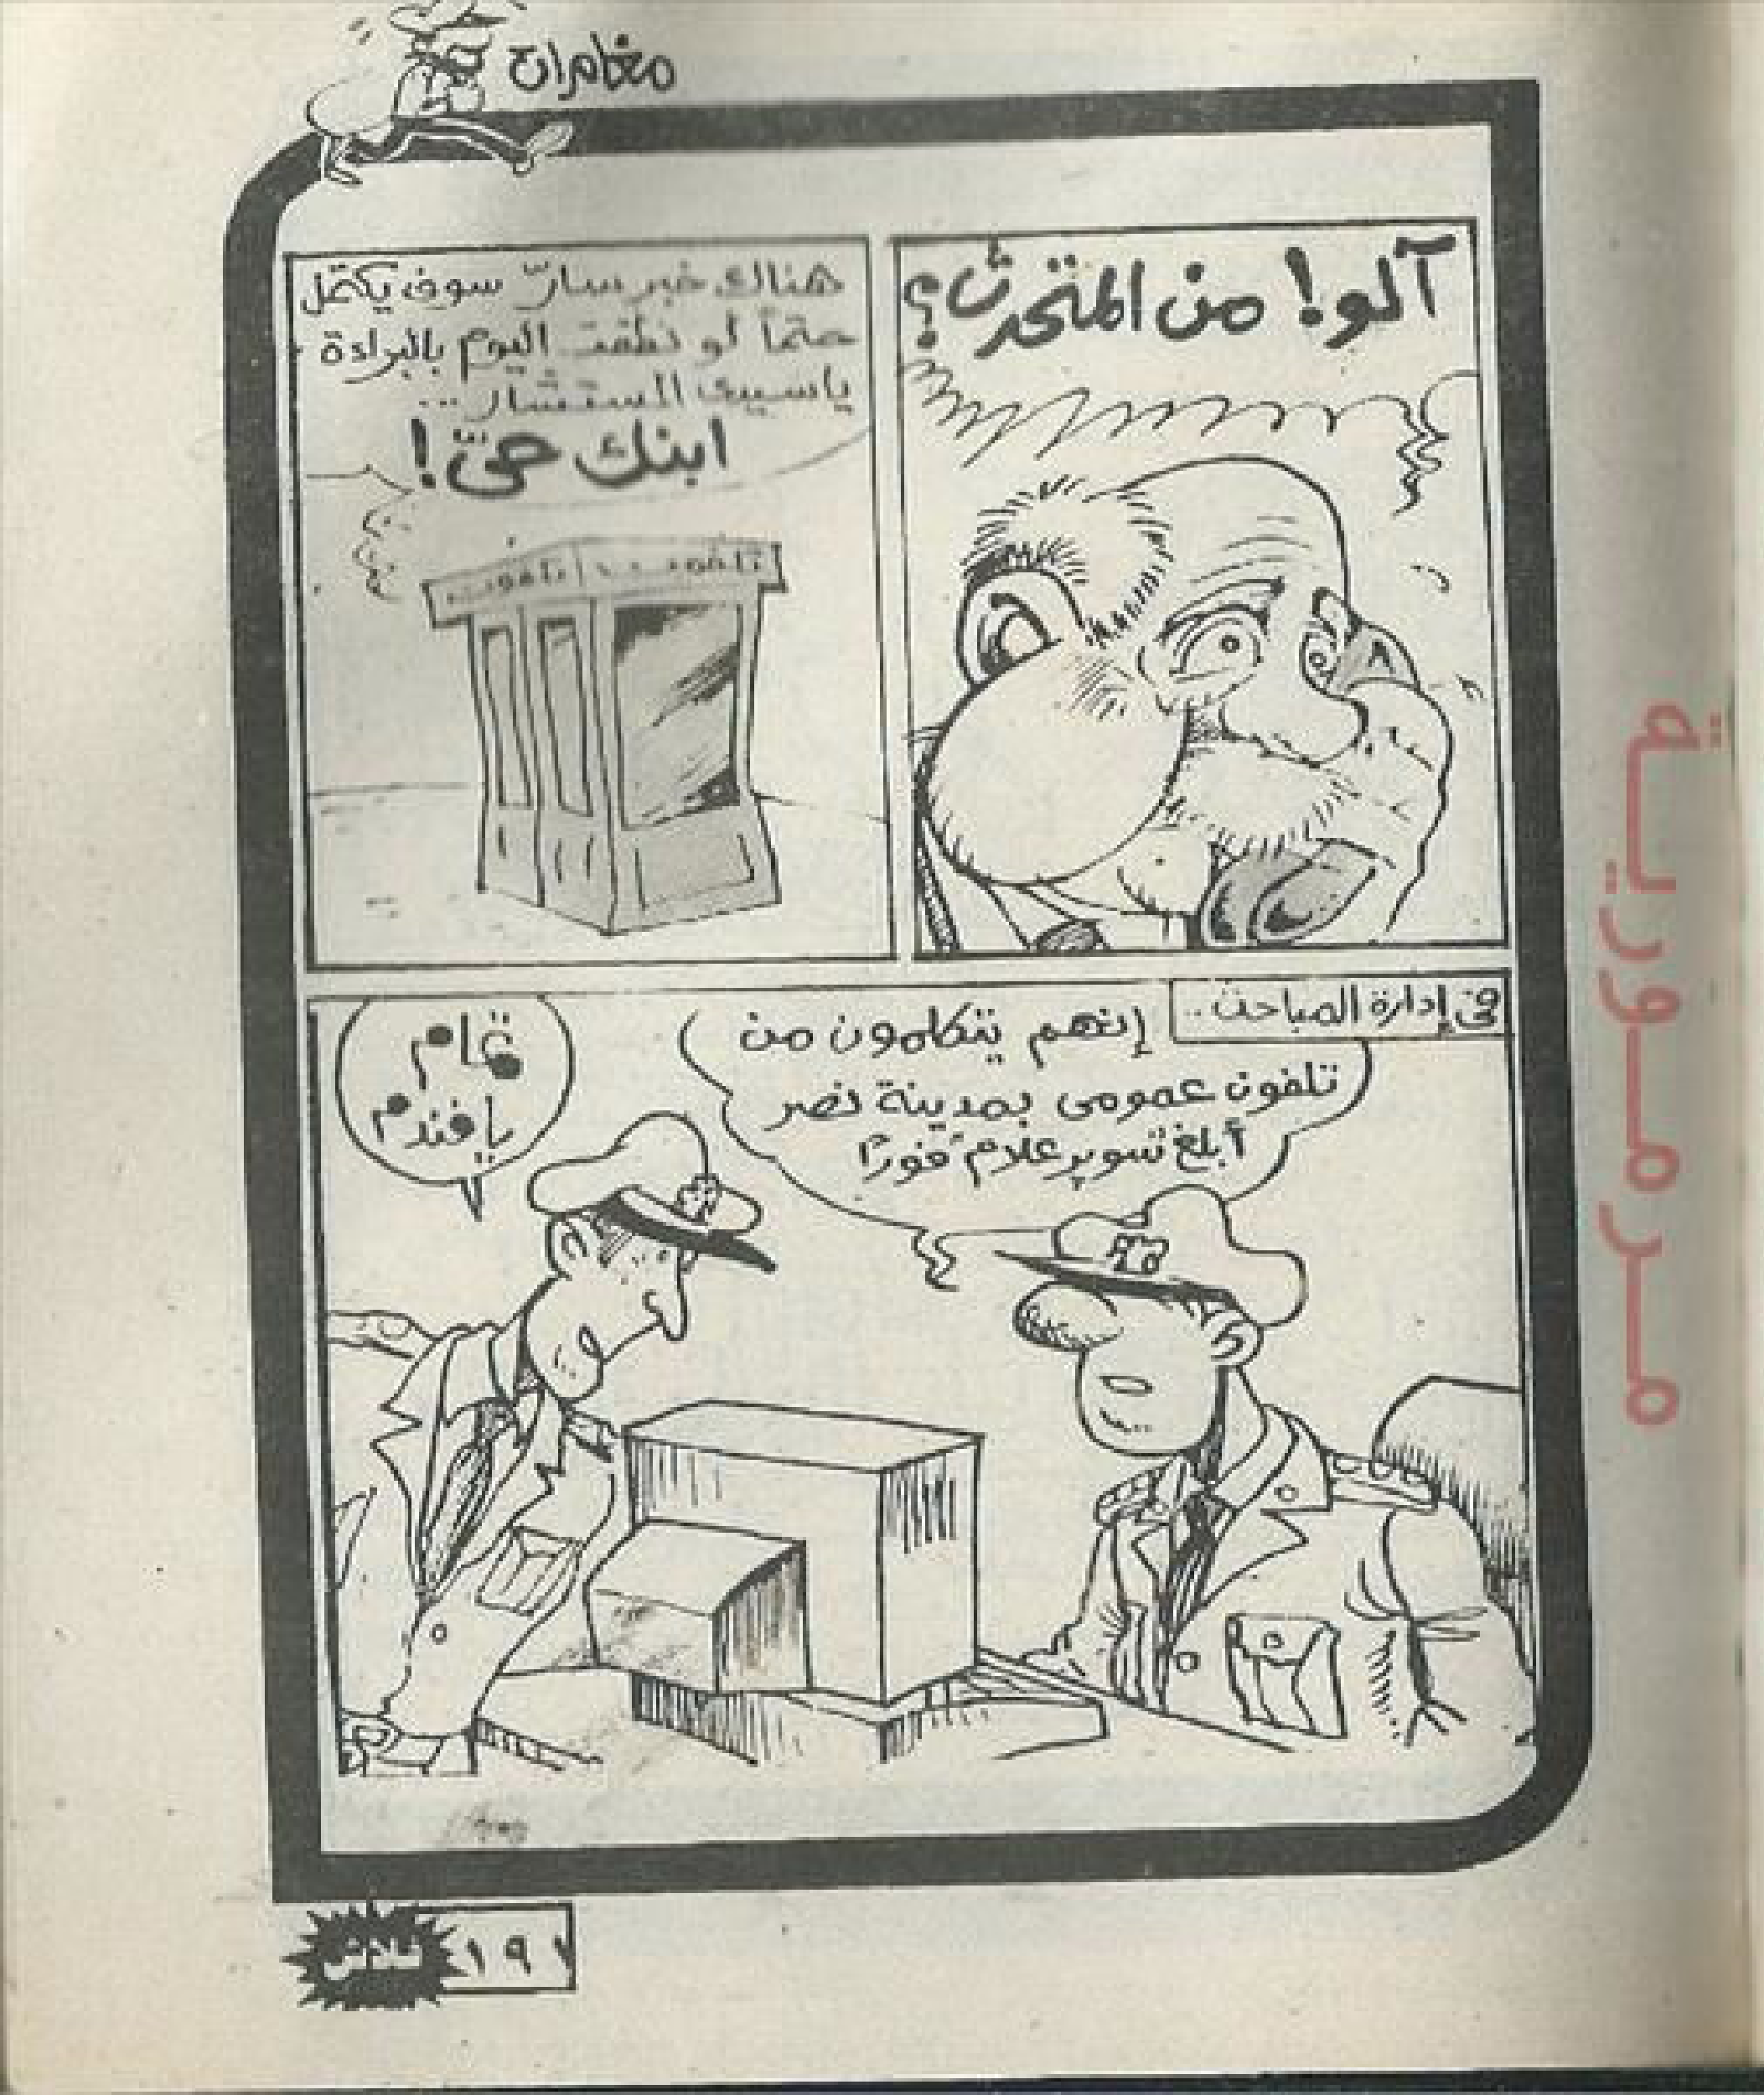 مغامرات
آلو! من المتحدث؟
هناك خبر سارّ سوف يكتمل
حتماً لو نطقت اليوم بالبراءة
ياسيدى المستشار...
ابنك حىّ!
تلفون تلفون
فى إدارة المباحث..
إنهم يتكلمون من
تلفون عمومى بمدينة نصر
أبلغ سوبر علام فوراً
تمام
يافندم
فلاش
١٩١
مرمورية